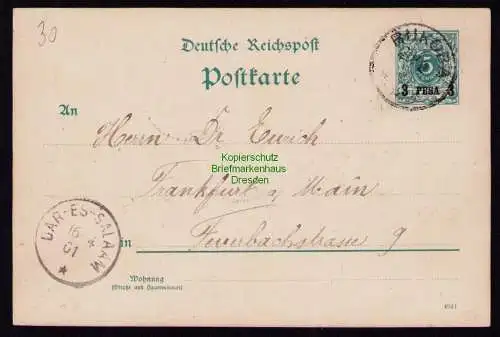 30
Deutsche Reichspost
Postkarte
BUKOBA
5
3 PESA 3
An
Herrn Dr Eurich
Kopierschutz
Briefmarkenhaus
Dresden
Frankfurt a/ Main
in Feuerbachstrasse 9
DAR-ES-SALAAM
16 4
01
Wohnung
(Straße und Hausnummer)